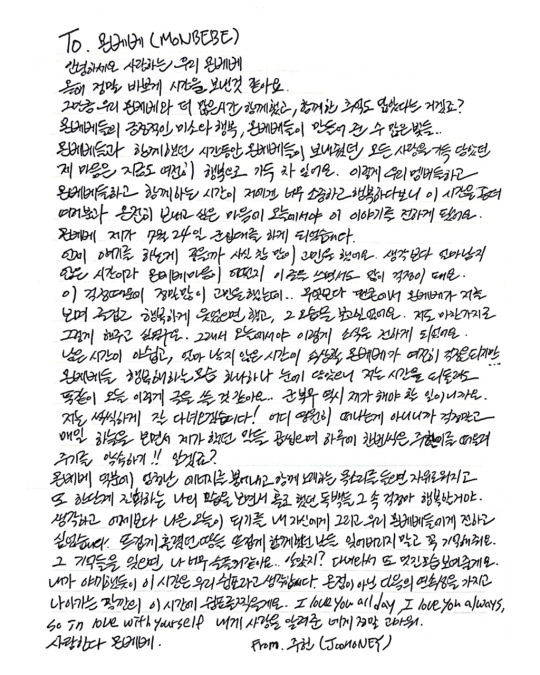 To. 몬베베 (MONBEBE)
안녕하세요 사랑하는 우리 몬베베
올해 정말 바쁘게 시간을 보낸것 같아요.
그만큼 우리 몬베베와 더 많은시간 함께했고, 함께한 추억도 많았다는 거겠죠?
몬베베들의 긍정적인 미소와 행복, 몬베베들이 만들어 준 수 많은 별들..
몬베베들과 함께했던 시간동안 몬베베들이 보내줬던 모든 사랑을 가득 담았던
제 마음은 지금도 여전히 행복으로 가득 차 있어요. 이렇게 우리 멤버들하고
몬베베들하고 함께하는 시간이 저에겐 너무 소중하고 행복하다보니 이 시간을
여러분과 온전히 보내고 싶은 마음에 오늘에서야 이 이야기를 전하게 됐어요.
몬베베 제가 7월 24일 군입대를 하게 되었습니다.
언제 얘기를 하는게 좋을까 사실 참 많이 고민을 했어요. 생각보다 얼마남지
않은 시간이라 몬베베마음이 어떤지 이 글을 쓰면서도 많이 걱정이 돼요.
이 걱정때문에 정말많이 고민을했는데.. 무엇보다 몬베베가 저를
보며 즐겁고 행복하게 웃었으면 했고, 그 모습을 보고싶었어요. 저도 마찬가지로
그렇게 해주고 싶었구요. 그래서 오늘에서야 이렇게 소식을 전하게 되었어요.
남은 시간이 아쉽고, 얼마 남지 않은 시간에 몬베베가 여전히 걱정되지만
몬베베들 행복해하는 모습 하나하나 눈에 담았으니 저는 시간을 되돌려도
똑같이 오늘 이렇게 글을 쓸 것 같아요.. 군복무 역시 제가 해야 할 일이니까요.
저는 씩씩하게 잘 다녀오겠습니다! 어디 영원히 떠나는게 아니니까 걱정말고
매일 하늘을 보면서 제가 했던 말들 곱씹으며 하루에 한번씩은 주헌이를 떠올려
주기를 약속하기!! 알겠죠?
몬베베 덕분에 엄청난 에너지를 함께 노래하는 목소리를 들으면 자유로워지고
또 한단계 진화하는 나의 모습을 보면서 홀로 했던 독백들 그 속 걱정마 행복한거야.
생각하고 어제보다 나은 오늘이 되기를 내 자신에게 그리고 우리 몬베베들에게 전하고
싶었습니다. 뜨겁게 흘렸던 땀들 뜨겁게 함께했던 날들 잊어버리지 말고 꼭 기억해줘요.
그 기억들을 잊으면 나 너무 슬플거같아요.. 알았지? 다녀와서 또 멋진모습보여줄게요.
내가 얘기했듯이 이 시간은 우리 쉼표라고 생각합니다 온점이 아닌 다음의 연속성을 가지고
나아가는 잠깐의 이 시간에 쉼표를찍을게요. I love you all day, I love you always,
so in love with yourself 내게 사랑을 알려준 네게 정말 고마워.
사랑한다 몬베베. From. 주헌 (JOOHONEY)